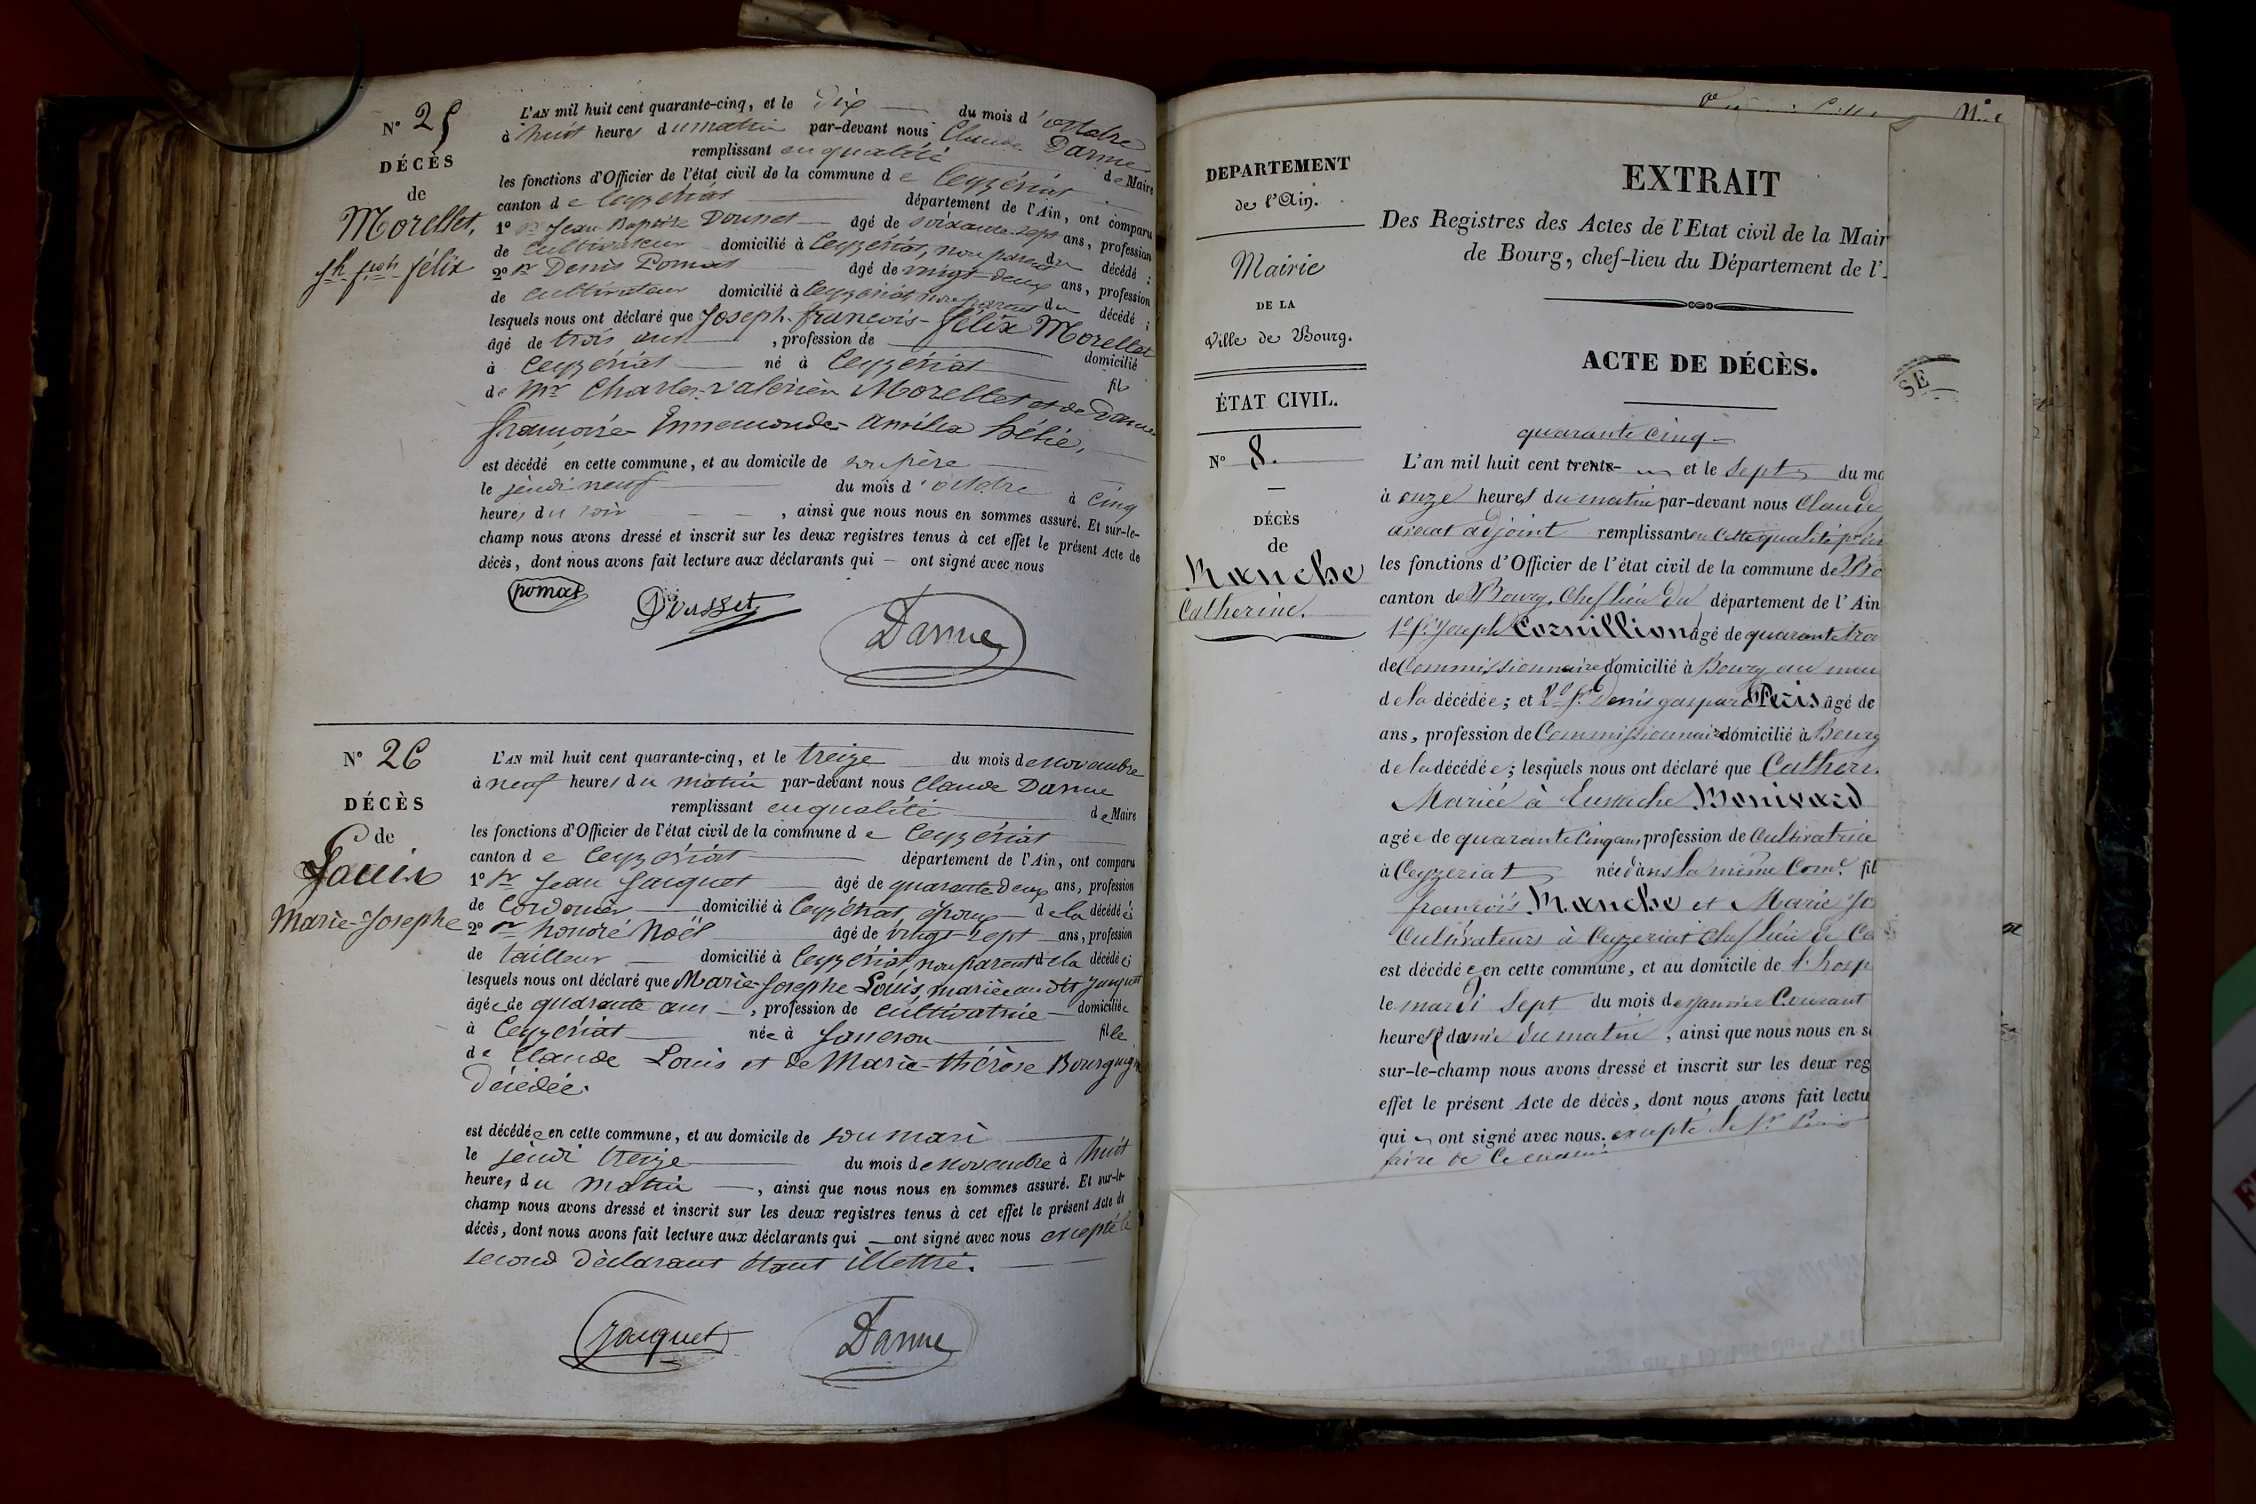 N° 25
DÉCÈS
de
Morellet,
Jh. fcois félix
L'AN mil huit cent quarante-cinq, et le dix du mois d'octobre
à huit heures du matin par-devant nous Claude Darme
remplissant en qualité de Maire
les fonctions d'Officier de l'état civil de la commune de Ceyzériat
canton de Ceyzériat département de l'Ain, ont comparu
1° Sr Jean Baptiste Dousset âgé de soixante sept ans, profession
de Cultivateur domicilié à Ceyzériat, non parent du décédé;
2° Sr Denis Pomat âgé de vingt-deux ans, profession
de cultivateur domicilié à Ceyzériat non parent du décédé;
lesquels nous ont déclaré que Joseph-françois-félix Morellet
âgé de trois ans, profession de domicilié
à Ceyzériat né à Ceyzériat fils
de Mr Charles-valérien Morellet et de Dame
françoise Ennemonde amélia hélie,
est décédé en cette commune, et au domicile de son père
le jeudi neuf du mois d'octobre à cinq
heures du soir, ainsi que nous nous en sommes assuré. Et sur-le-
champ nous avons dressé et inscrit sur les deux registres tenus à cet effet le présent Acte de
décès, dont nous avons fait lecture aux déclarants qui — ont signé avec nous
pomat Dousset Darme
N° 26
DÉCÈS
de
Louis
Marie-Josephe
L'AN mil huit cent quarante-cinq, et le treize du mois de novembre
à neuf heures du matin par-devant nous Claude Darme
remplissant en qualité de Maire
les fonctions d'Officier de l'état civil de la commune de Ceyzériat
canton de Ceyzériat département de l'Ain, ont comparu
1° Sr Jean Jacquet âgé de quarante deux ans, profession
de Cordonier domicilié à Ceyzériat, époux de la décédée
2° Sr honoré Noël âgé de vingt-sept ans, profession
de tailleur domicilié à Ceyzériat, non parent de la décédée;
lesquels nous ont déclaré que Marie-Josephe Louis, mariée au dit Jacquet
âgée de quarante ans, profession de cultivatrice domiciliée
à Ceyzériat née à Jasseron fille
de Claude Louis et de Marie-thérèse Bourguign
Décédée.
est décédée en cette commune, et au domicile de son mari
le jeudi treize du mois de novembre à huit
heures du matin, ainsi que nous nous en sommes assuré. Et sur-le-
champ nous avons dressé et inscrit sur les deux registres tenus à cet effet le présent Acte de
décès, dont nous avons fait lecture aux déclarants qui — ont signé avec nous excepté le
second déclarant étant illettré.
Jacquet Darme
DEPARTEMENT
de l'Ain.
Mairie
DE LA
Ville de Bourg.
ÉTAT CIVIL.
N° 8.
DÉCÈS
de
Manche
Catherine.
EXTRAIT
Des Registres des Actes de l'Etat civil de la Mair
de Bourg, chef-lieu du Département de l'
ACTE DE DÉCÈS.
quarante cinq
L'an mil huit cent trente- et le sept du mo
à onze heures du matin par-devant nous Claude
avocat adjoint remplissant en cette qualité
les fonctions d'Officier de l'état civil de la commune de Bo
canton de Bourg, Chef lieu du département de l'Ain
1° Sr Joseph Cornillion âgé de quarante troi
de Commissionnaire domicilié à Bourg
de la décédée; et 2° Sr Denis gaspard Peris âgé de
ans, profession de Commissionnaire domicilié à Bourg
de la décédée; lesquels nous ont déclaré que Catheri
Mariée à Eustache Bonivard
agée de quarante Cinq ans profession de Cultivatrice
à Ceyzeriat née dans la même Come. fil
françois Manche et Marie Jo
Cultivateurs à Ceyzeriat Chef lieu de Ca
est décédée en cette commune, et au domicile de l'hosp
le mardi sept du mois de Janvier Courant
heures demie du matin, ainsi que nous nous en so
sur-le-champ nous avons dressé et inscrit sur les deux reg
effet le présent Acte de décès, dont nous avons fait lectu
qui ont signé avec nous. excepté le Sr Peris
faire de ce enquis
SE